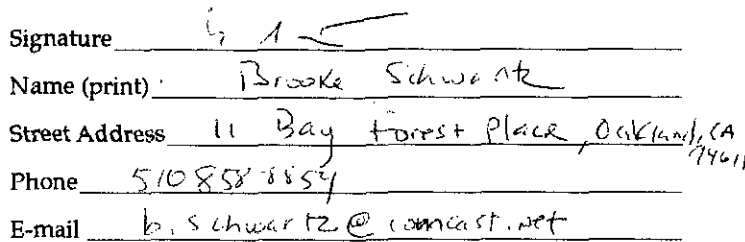 Signature
Name (print) Brooke Schwartz
Street Address 11 Bay Forest Place, Oakland, CA 94611
Phone 510 858 8854
E-mail b.schwartz@comcast.net